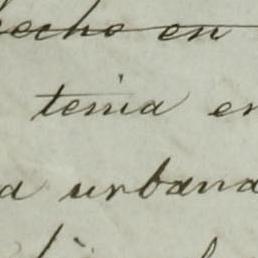 hecho en
tenia en
a urbana